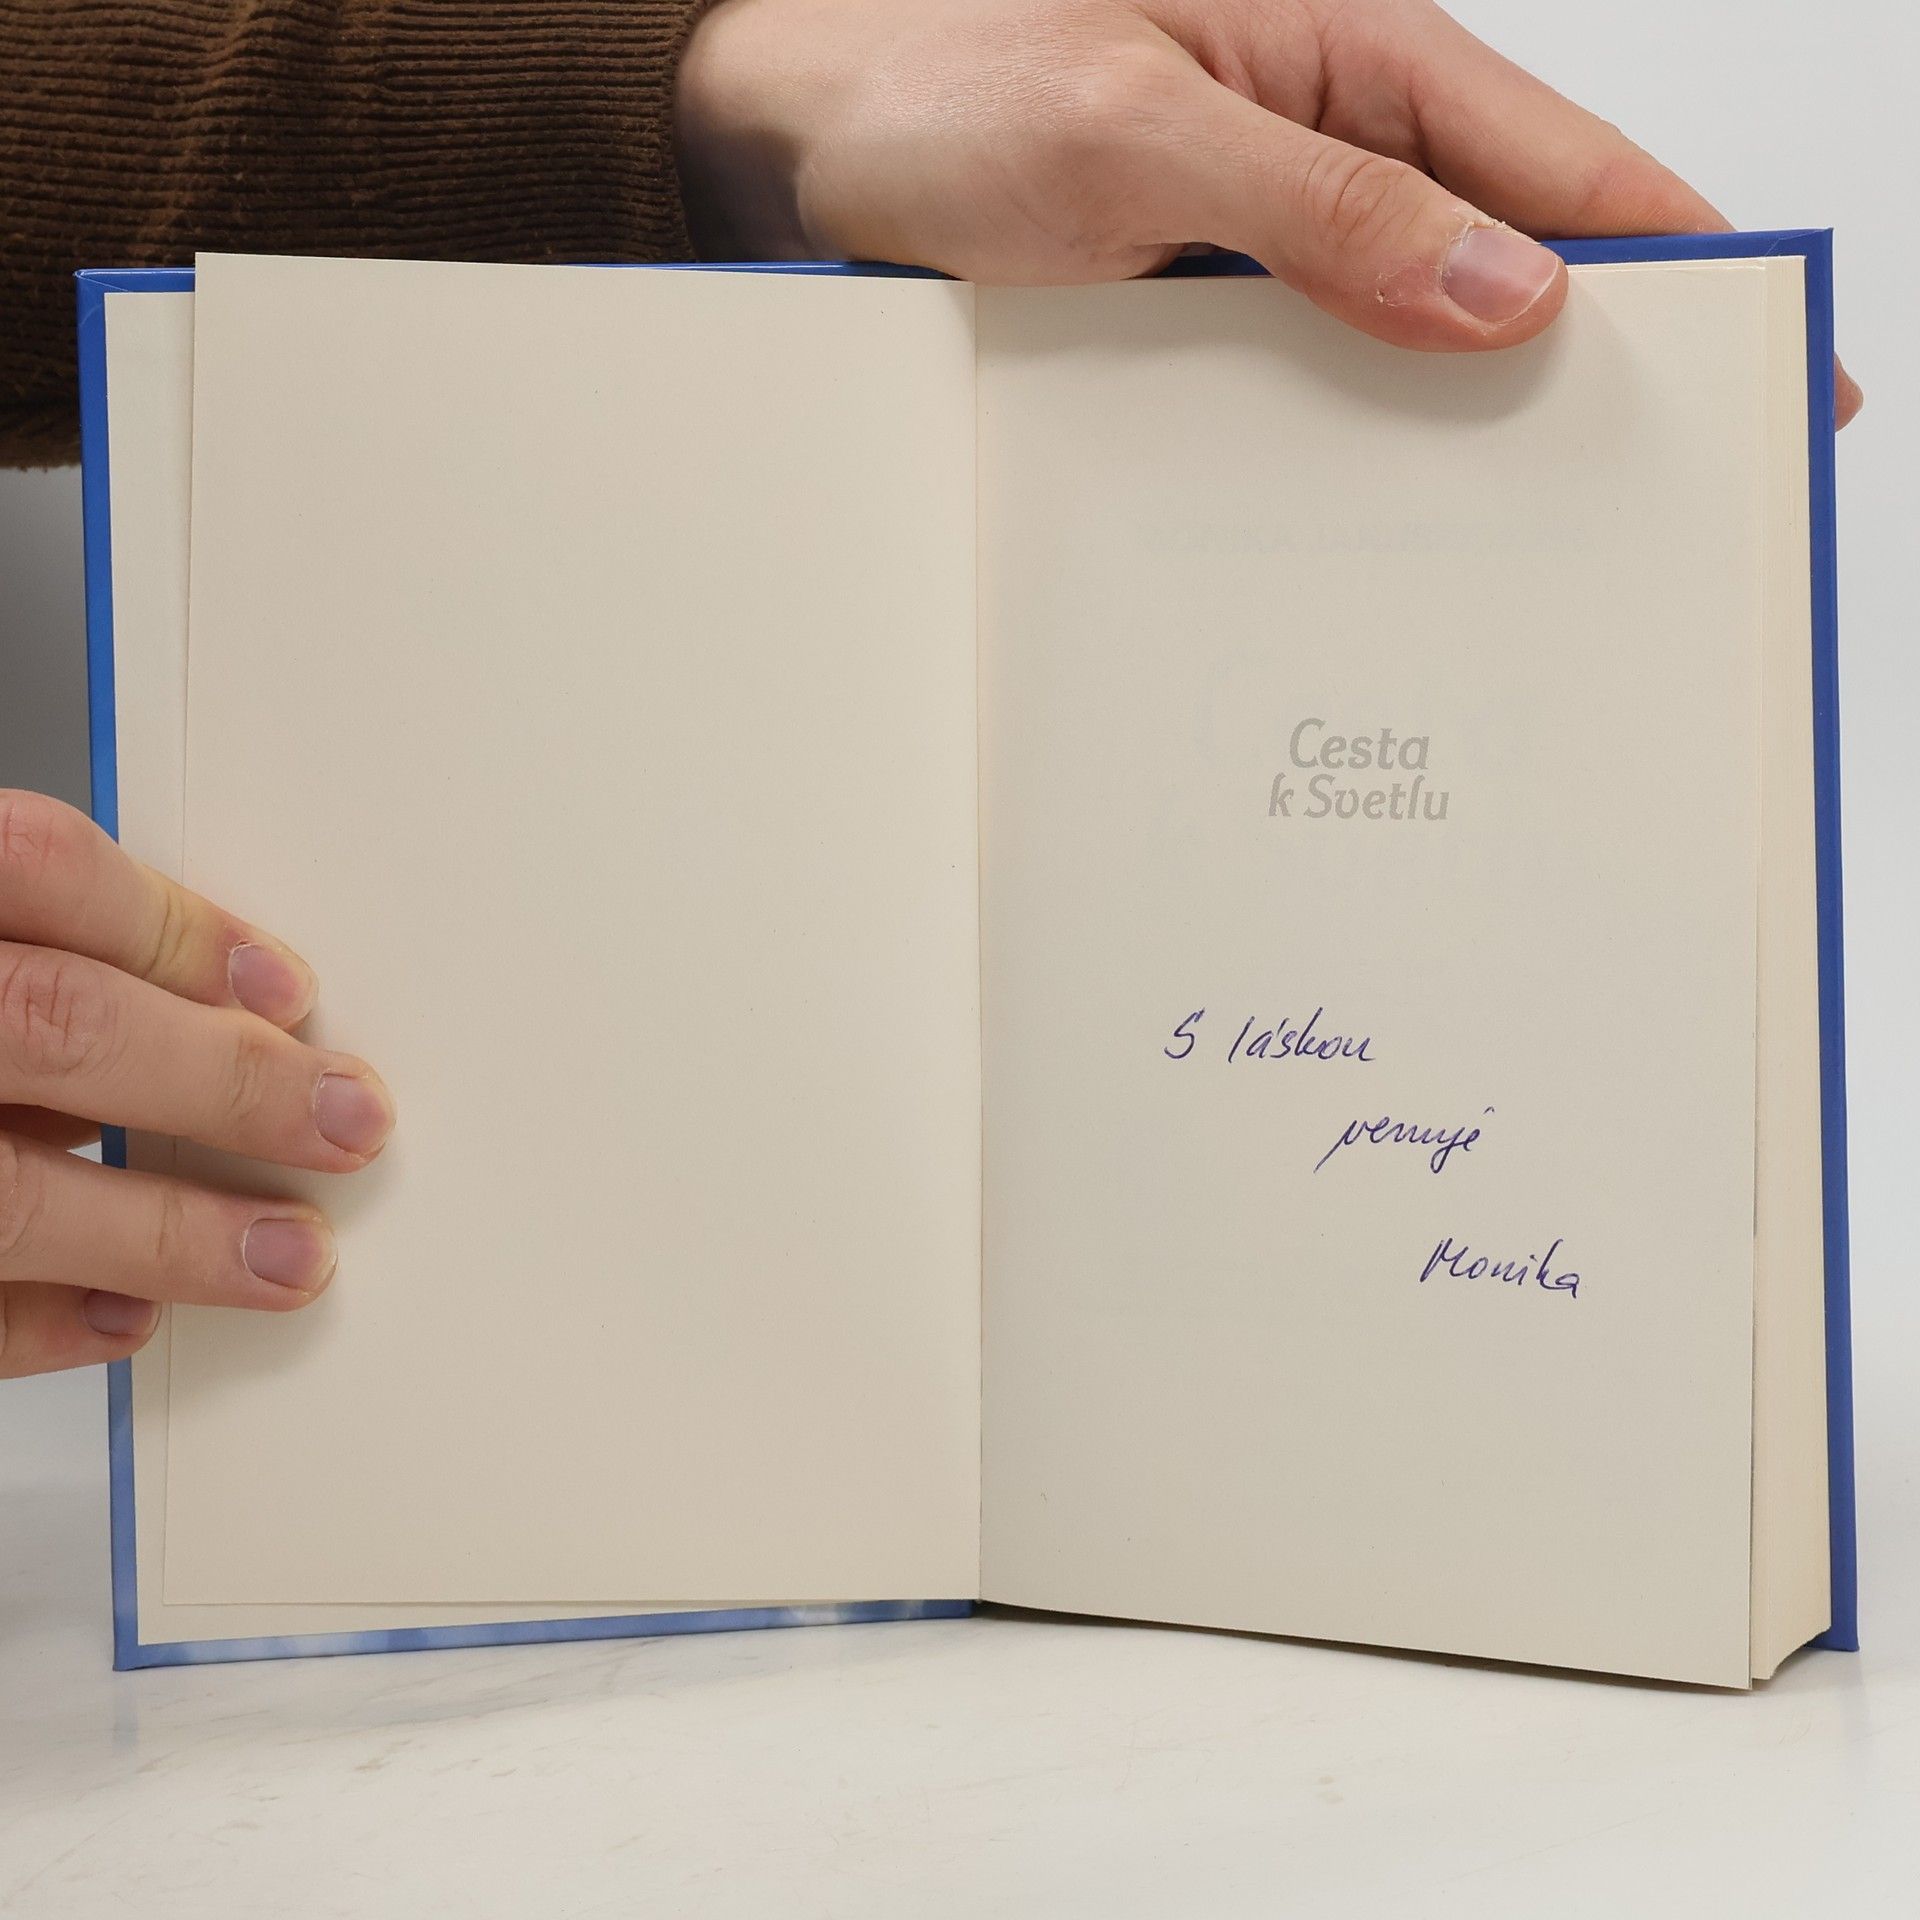 Cesta
k Svetlu
S láskou
venuje
Monika